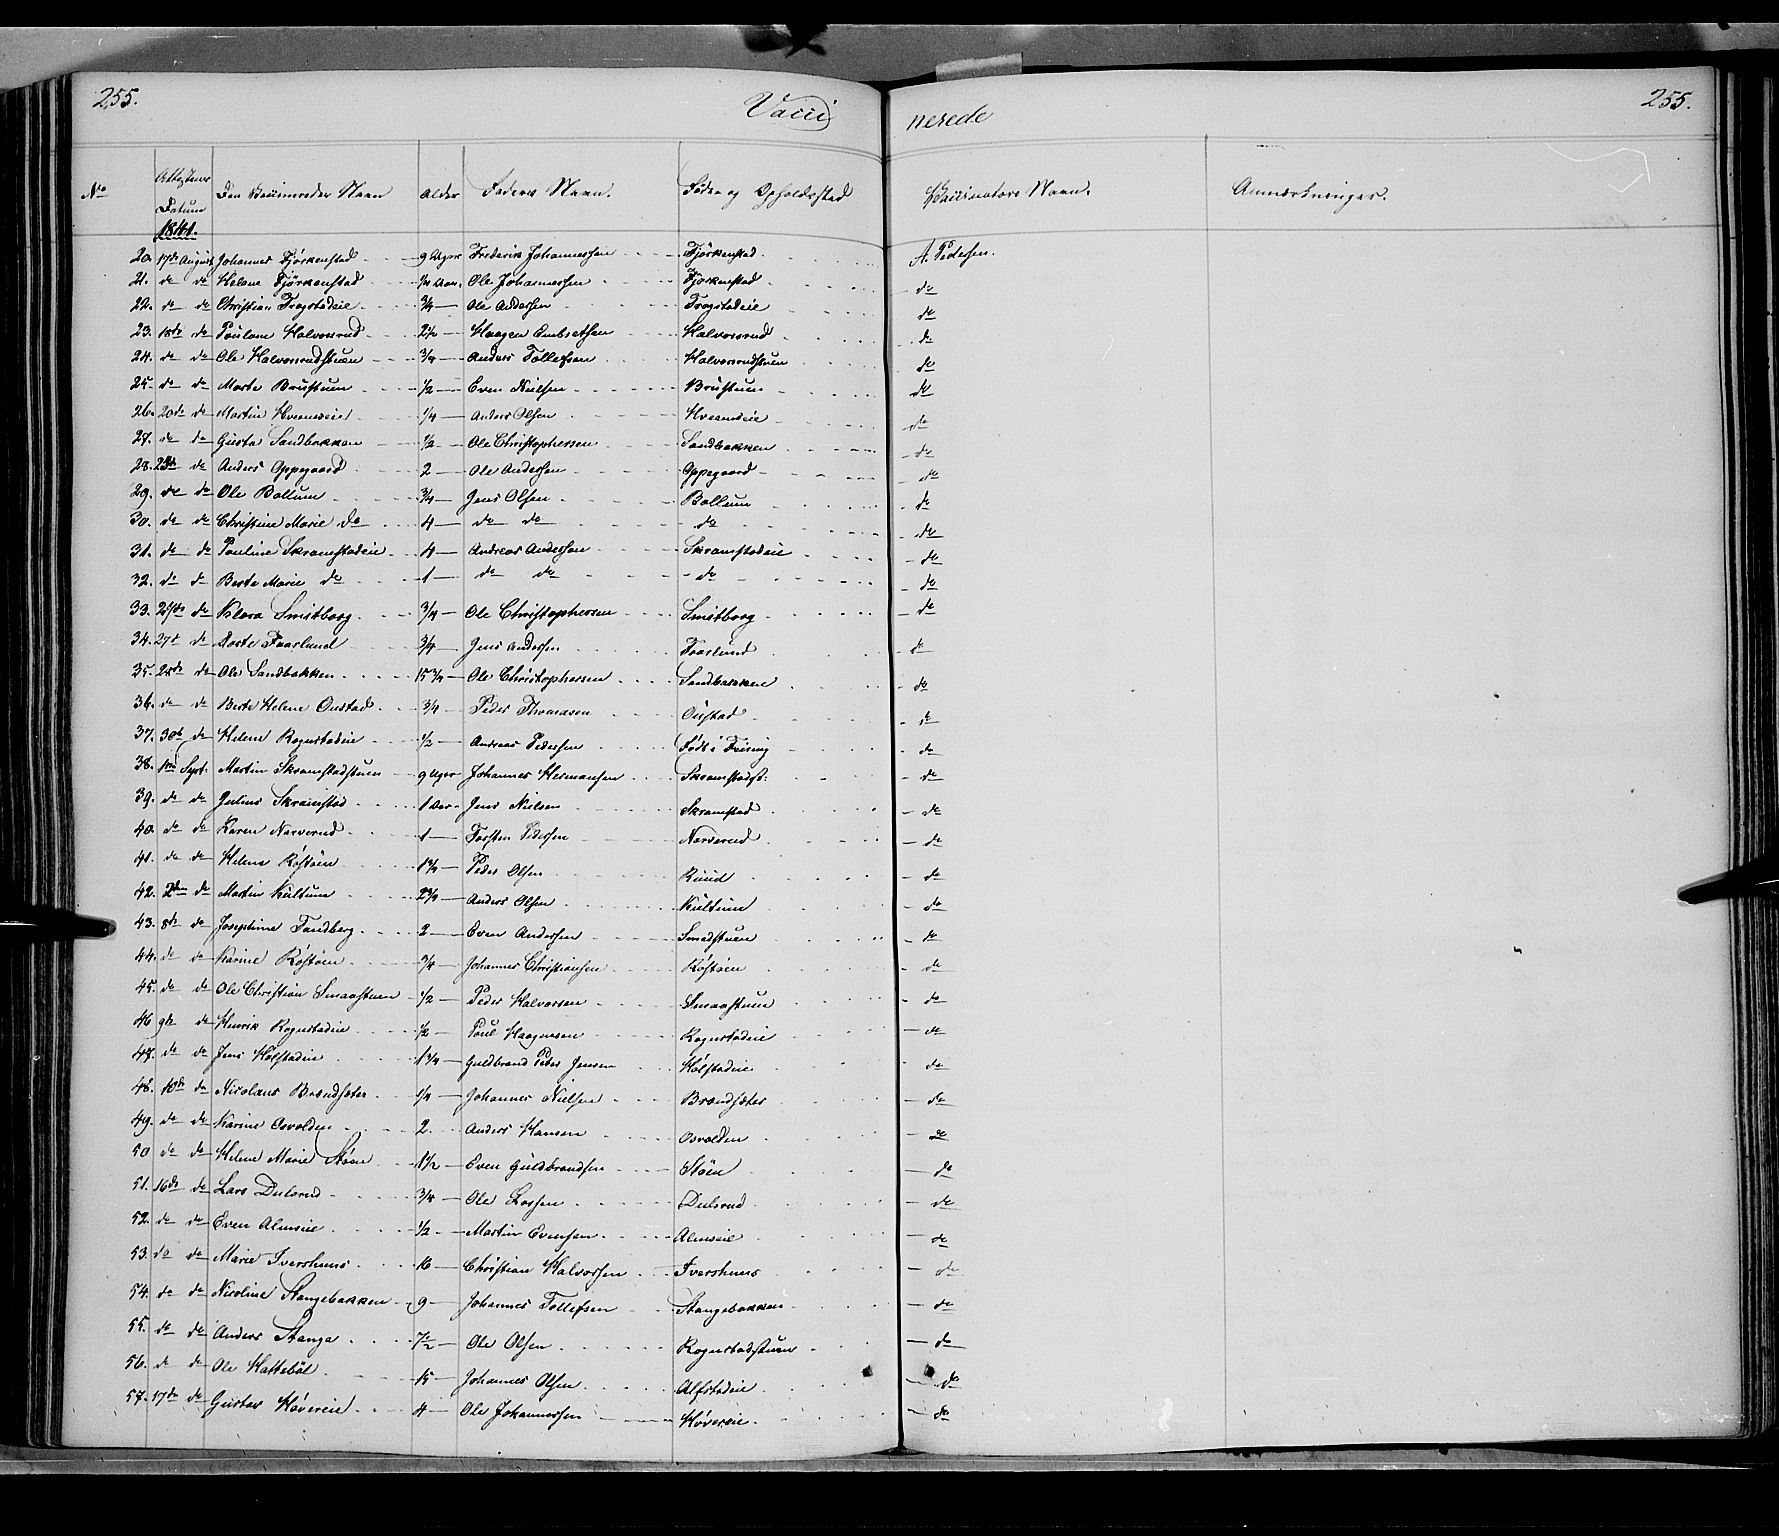 255. Vacci nerede 255.
No Attestens Datum 1841. Den Vaccineredes Navn Alder Faderens Navn. Føde og Opholdssted Vaccinators Navn. Anmærkninger.
20. 17de August Johannes Fjørkenstad 9 Uger Frederik Johannessen Fjørkenstad A. Pedersen.
21. do do Helene Fjørkenstad 1/4 Aar. Ole Johannessen Fjørkenstad do
22. do do Christian Trogstadeie 3/4 Ole Andersen Trogstadeie do
23. 18de do Poulane Halvorsrud 2 1/4 Haagen Embretsen Halvorsrud do
24. do do Ole Halvorsrudstuen 3/4 Anders Tollefsen Halvorsrudstuen do
25. do do Marte Brustuen 1/2 Even Nielsen Brustuen do
26. 20de do Martin Hveemseie 1/4 Anders Olsen Hveemseie do
27. do do Gusta Sandbakken 1/2 Ole Christophersen Sandbakken do
28. 23de do Anders Oppegaard 2 Ole Andersen Oppegaard do
29. do do Ole Bollum 3/4 Jens Olsen Bollum do
30. do do Christine Marie do 4 do do do do
31. do do Pauline Skramstadeie 4 Andreas Andersen Skramstadeie do
32. do do Berte Marie do 1 do do do do
33. do Klara Smitborg 3/4 Ole Christophersen Smitborg do
34. 27d do Dorte Faarlund 3/4 Jens Andersen Faarlund do
35. 28de do Ole Sandbakken 15 3/4 Ole Christophersen Sandbakken do
36. do do Berte Helene Oustad 3/4 Peder Thomasen Oustad do
37. 30te do Helene Rognstadeie 1/2 Andreas Pedersen Født i do
38. 1ste Sept. Martin Skramstadstuen 9 Uger Johannes Hermansen Skramstadst. do
39. do do Julius Skramstad 1 Aar Jens Nielsen Skramstad do
40. do do Karen Narverud 1 Torsten Pedersen Narverud do
41. do do Helene Røstøen 1 3/4 Peder Olsen Ruud do
42. 2den do Martin Kultum 2 3/4 Anders Olsen Kultum do
43. 8de do Josephine Tandberg 2 Even Andersen Smedstuen do
44. do do Karine Røstøen 3/4 Johannes Christiansen Røstøen do
45. do do Ole Christian Smaastuen 1/2 Peder Halvorsen Smaastuen do
46 9de do Henrik Rognstadeie 1/2 Poul Haagensen Rognstadeie do
47. do do Jens Kolstadeie 1 3/4 Guldbrand Peder Jensen Kolstadeie do
48. 10de do Nicolaus Brændsæter 1/4 Johannes Nielsen Brændsæter do
49. do do Karine Osvolden 2 Anders Hansen Osvolden do
50 do do Helene Marie Støen 1 1/2 Even Guldbrandsen Støen do
51. 16de do Lars Dulsrud 3/4 Ole Larsen Dulsrud do
52. do do Even Almseie 1/2 Martin Evensen Almseie do
53. do do Marie Ivershuus 16 Christian Halvorsen Ivershuus do
54. do do Nicoline Stangebakken 9 Johannes Tollefsen Stangebakken do
55. do do Anders Stange 7 1/2 Ole Olsen Rognstadstuen do
56. do do Ole Hattebøl 15 Johannes Olsen Alfstadeie do
57. 17de do Gustav Høvereie 4 Ole Johannessen Høvereie do